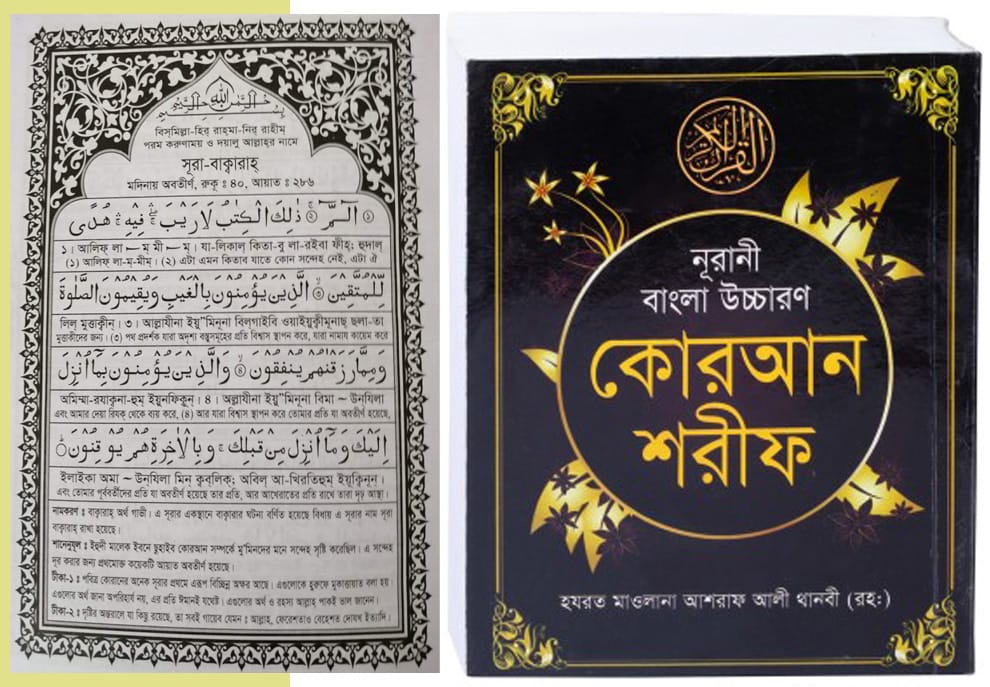 بسم الله الرحمن الرحيم
বিস্‌মিল্লা-হির্ রাহ্‌মা-নির্ রাহীম্
পরম করুণাময় ও দয়ালু আল্লাহ্‌র নামে
সূরা-বাক্বারাহ্
মদিনায় অবতীর্ণ, রুকু ঃ ৪০, আয়াত ঃ ২৮৬
الٓمّٓ ۚ ذٰلِكَ الْكِتٰبُ لَا رَيْبَ ۛ فِيْهِ ۛ هُدًى
১। আলিফ্ লা — ম মী — ম। যা-লিকাল্ কিতা-বু লা-রইবা ফীহ্; হুদাল্
(১) আলিফ্ লা-ম-মীম্। (২) এটা এমন কিতাব যাতে কোন সন্দেহ নেই, এটা ঐ
لِّلْمُتَّقِيْنَ ۙ الَّذِيْنَ يُؤْمِنُوْنَ بِالْغَيْبِ وَيُقِيْمُوْنَ الصَّلٰوةَ
লিল্ মুত্তাক্বীন্। ৩। আল্লাযীনা ইয়ু”মিনূনা বিল্‌গাইবি ওয়াইয়ুক্বীমূনাছ্ ছলা-তা
মুত্তাকীদের জন্য। (৩) পথ প্রদর্শক যারা অদৃশ্য বস্তুসমূহের প্রতি বিশ্বাস স্থাপন করে, যারা নামায কায়েম করে
وَمِمَّا رَزَقْنٰهُمْ يُنْفِقُوْنَ ۙ وَالَّذِيْنَ يُؤْمِنُوْنَ بِمَآ اُنْزِلَ
অমিম্মা-রযাক্বনা-হুম্ ইয়ুনফিকুন্। ৪। অল্লাযীনা ইয়ু”মিনূনা বিমা ~ উনযিলা
এবং আমার দেয়া রিযক্ থেকে ব্যয় করে, (৪) আর যারা বিশ্বাস স্থাপন করে তোমার প্রতি যা অবতীর্ণ হয়েছে,
اِلَيْكَ وَمَآ اُنْزِلَ مِنْ قَبْلِكَ ۚ وَبِالْاٰخِرَةِ هُمْ يُوْقِنُوْنَ
ইলাইকা অমা ~ উনযিলা মিন্ ক্বব্‌লিক্; অবিল্ আ-খিরতিহুম ইয়ূক্বিনূন্।
এবং তোমার পূর্ববর্তীদের প্রতি যা অবতীর্ণ হয়েছে তার প্রতি, আর আখেরাতের প্রতি রাখে তারা দৃঢ় আস্থা।
নামকরণ ঃ বাক্বারাহ্ অর্থ গাভী। এ সূরার একস্থানে বাক্বারার ঘটনা বর্ণিত হয়েছে বিধায় এ সূরার নাম সূরা
বাক্বারাহ্ রাখা হয়েছে।
শানেনুযূল ঃ ইহুদী মালেক ইবনে ছুহাইব কোরআন সম্পর্কে মু’মিনদের মনে সন্দেহ সৃষ্টি করেছিল। এ সন্দেহ
দূর করার জন্য প্রথমোক্ত কয়েকটি আয়াত অবতীর্ণ হয়েছে।
টীকা-১ ঃ পবিত্র কোরানের অনেক সূরার প্রথমে এরূপ বিচ্ছিন্ন অক্ষর আছে। এগুলোকে হুরুফে মুকাত্তায়াত বলা হয়।
এগুলোর অর্থ জানা অপরিহার্য নয়, এর প্রতি ঈমানই যথেষ্ট। এগুলোর অর্থ ও রহস্য আল্লাহ্ পাকই ভাল জানেন।
টীকা-২ ঃ দৃষ্টির অন্তরালে যা কিছু রয়েছে, তা সবই গায়েব যেমন ঃ আল্লাহ, ফেরেশতাও বেহেশত দোযখ ইত্যাদি।
القرآن الكريم
নূরানী
বাংলা উচ্চারণ
কোরআন
শরীফ
হযরত মাওলানা আশরাফ আলী থানবী (রহঃ)